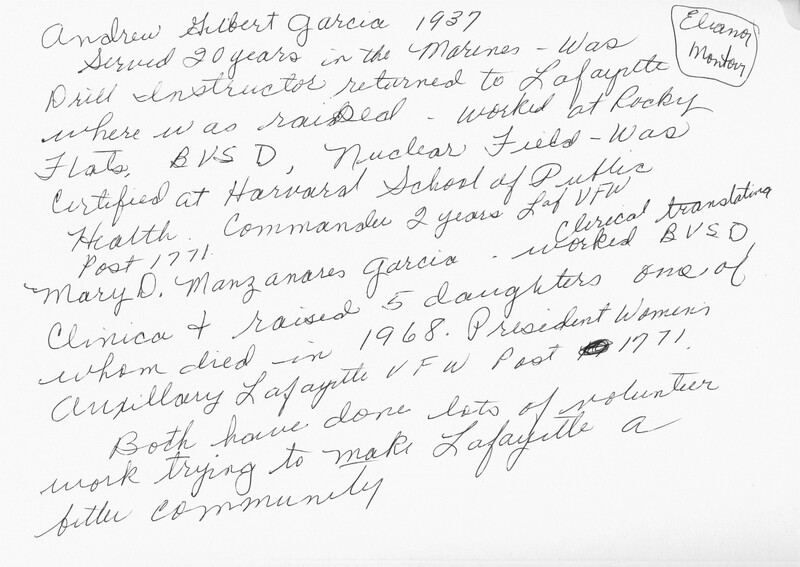 Andrew Gilbert Garcia 1937
Eleanor
Montour
Served 20 years in the Marines - Was
Drill Instructor returned to Lafayette
where was raised - worked at Rocky
Flats, BVSD, Nuclear Field - Was
Certified at Harvard School of Public
Health. Commander 2 years Laf VFW
Post 1771
Clerical translating
Mary D. Manzanares Garcia - worked BVSD
Clinica & raised 5 daughters one of
whom died in 1968. President Womens
Auxillary Lafayette VFW Post 1771.
Both have done lots of volunteer
work trying to make Lafayette a
better community